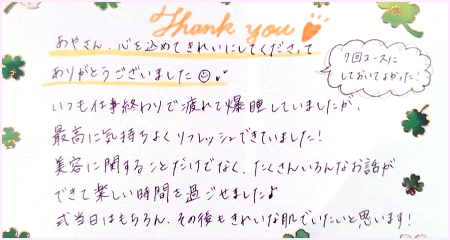 Thank you
あやさん、心を込めてきれいにしてくださって
ありがとうございました
7回コースに
しておいてよかった!
いつも仕事終わりで疲れて爆睡していましたが、
最高に気持ちよくリフレッシュできていました!
美容に関することだけでなく、たくさんいろんなお話が
できて楽しい時間を過ごせました♪
式当日はもちろん、その後もきれいな肌でいたいと思います!